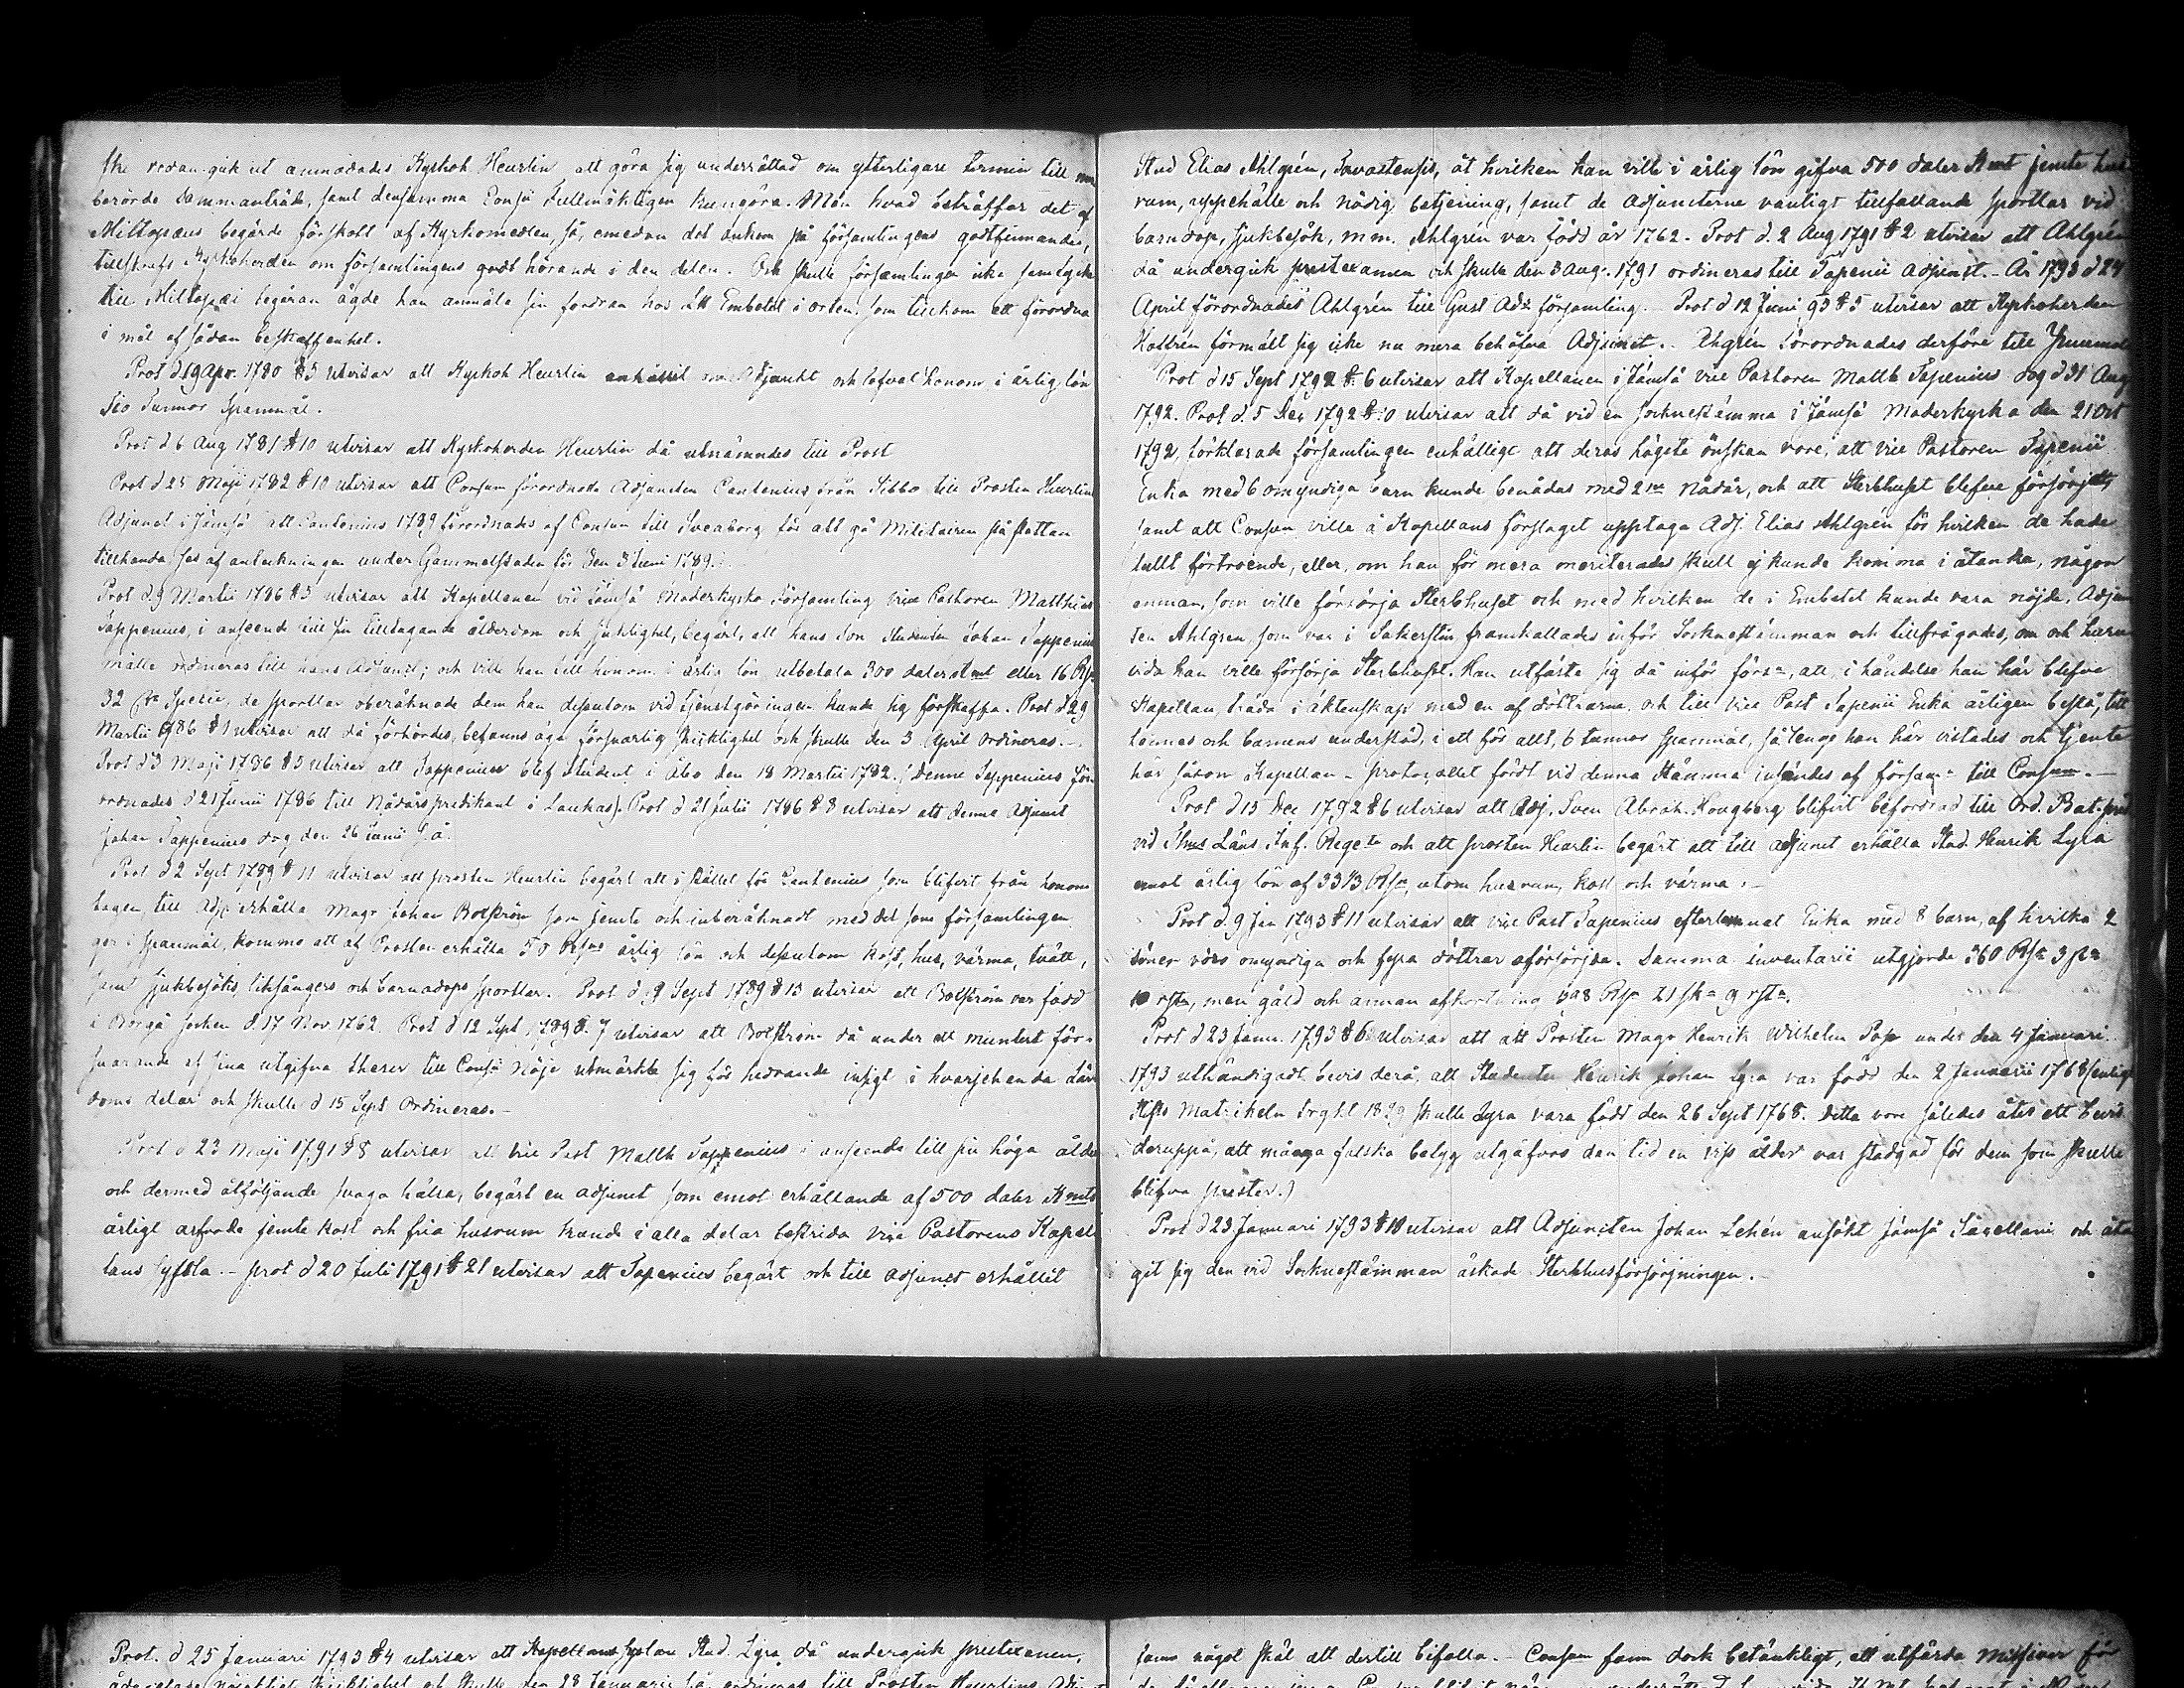 redan gick ut anmodades Kyrkoh Heurlin att göra sig underrättad om ytterligare termin till
berörde sammanträde, samt densamma Consii Fullmäktigen kungöra. Men hvad beträffar det af
Miltopæus begärde förskott af Kyrkomedlen, så, emedan det ankom på församlingens godtfinnande,
tillskrefs Kyrkoherden om församlingens godt hörande i den delen. Och skulle församlingen icke samtycka
till Miltopæi begäran ägde han anmäla sin fordran hos Embetet i orten, som tillkom att förordna
i mål af sådan beskaffenhet.
Prot d 19 Apr. 1780 § 5 utvisar att Kyrkoh Heurlin anhållit om Adjunkt och lofvat honom i årlig lön
Tio Tunnor Spanmål.
Prot d 6 Aug 1781 § 10 utvisar att Kyrkoherden Heurlin då utnämndes till Prost
Prot d 28 Maji 1782 § 10 utvisar att Consum förordnade Adjuncten Cantenius från Sibbo till Prosten Heurlins
Adjunct i Jämsä att Cantenius 1789 förordnades af Consum till Sveaborg för att gå Militairen på flottan
tillhanda ses af anteckningen under Gammelstaden för den 3 Juni 1789.
Prot d 9 Martii 1786 § 5 utvisar att Kapellanen vid Jämsä Moderkyrko Församling vice Pastoren Matthias
Tappenius, i anseende till sin tilltagande ålderdom och sjuklighet, begärt, att hans Son Studenten Johan Tappenius
måtte ordineras till hans Adjunct; och ville han till honom i årlig lön utbetala 300 daler kmt eller 16 Rdr
32 sk Specie, de sportlar oberäknade dem han dessutom vid tjenstgöringen kunde sig förskaffa. Prot d 29
Martii 1786 § 1 utvisar att då förhördes, befanns äga försvarlig skicklighet och skulle den 3 April ordineras.
Prot d 3 Maji 1786 § 5 utvisar att Tappenius blef student i Åbo den 18 Martii 1782. (Denne Tappenius för-
ordnades d 21 Junii 1786 till Nådårspredikant i Laukas). Prot d 21 Julii 1786 § 8 utvisar att denne Adjunct
Johan Tappenius dog den 26 Junii s. å.
Prot d 2 Sept 1789 § 11 utvisar att prosten Heurlin begärt att i stället för Cantenius som blifvit från honom
tagen, till Adj erhålla Magr Johan Boström som jemte och inberäknadt med det som församlingen
ger i spanmål, komme att af Prosten erhålla 50 Rdr årlig lön och dessutom kost, hus, värma, tvätt,
samt sjukbesöks, liksångers och barnadops sportlar. Prot d 9 Sept 1789 § 13 utvisar att Boström var född
i Borgå socken d. 17 Nov 1762. Prot d 12 Sept 1789 § 7 utvisar att Boström då under ett muntert för-
svarande af sina utgifva theser till Consii Nöje utmärkte sig för hedrande insigt i hvarjehanda Lär-
doms delar och skulle d 15 Sept Ordineras.
Prot d 23 Maji 1791 § 8 utvisar att vice Past Matth Tappenius i anseende till sin höga ålder
och dermed åtföljande svaga hälsa, begärt en adjunct som emot erhållande af 500 daler Kmts
årligt arfvode jemte kost och fria husrum kunde i alla delar bestrida vice Pastorens Kapel-
lans syssla. – prot d 20 Juli 1791 § 21 utvisar att Tapenius begärt och till adjunct erhållit
Stud Elias Ahlgrén, Tavastensis, åt hvilken han ville i årlig lön gifva 500 daler Kmt jemte hus-
rum, uppehälle och nödig betjening, samt de adjuncterne vanligt tillfallande sportlar vid
barndop, sjukbesök, m.m. Ahlgrén var född år 1762. Prot d. 2 Aug 1791 § 2 utvisar att Ahlgrén
då undergick prestexamen och skulle den 3 Aug. 1791 ordineras till Tapenii adjunct. – År 1793 d 24
April förordnades Ahlgrén till Gust Ads församling. Prot d 12 Juni 93 § 5 utvisar att Kyrkoherden
förmält sig icke nu mera behöfva Adjunct. Ahlgrén förordnades derföre till
Prot d 15 Sept 1792 § 6 utvisar att Kapellanen i Jämsä vice Pastoren Matth Tapenius dog d 31 Aug
1792. Prot d. 5 Dec 1792 § 10 utvisar att då vid en sockenstämma i Jämsä Moderkyrka den 21 Oct
1792, förklarade församlingen enhällige att deras högsta önskan vore, att vice Pastoren Tapenii
Enka med 6 omyndiga barn kunde benådas med 2ne Nådår, och att Sterbhuset blefve försörjdt,
samt att Consum ville å Kapellans förslaget upptaga Adj. Elias Ahlgrén för hvilken de hade
fullt förtroende, eller, om han för mera meriterades skull ej kunde komma i åtanka, någon
annan, som ville försörja Sterbhuset och med hvilken de i Embetet kunde vara nöjde. Adjunc-
ten Ahlgren, som var i Sakerstin framkallades inför Sockenstämman och tillfrågades, om och huru-
vida han ville försörja Sterbhuset. Han utfäste sig då inför förs, att, i händelse han här blefve
Kapellan, träda i äktenskap med en af döttrarne, och till vice Past Tapenii Enka årligen bestå, till
hennes och barnens understöd, i ett för allt, 6 tunnor spanmål, så länge han här vistades och tjente
här såsom Kapellan – protocollet fördt vid denna Stämma insändes af församn till Consum. –
Prot d 13 Dec 1792 § 6 utvisar att Adj. Sven Abrah. Hougberg blifvit befordrad till Ord. Bat. pred
vid Thus Läns Inf. Regete och att prosten Heurlin begärt att till adjunct erhålla Stud. Henrik Lyra
emot årlig lön af 33 1/3 Rdr, utom husrum, kost och värma. –
Prot d. 9 Jan 1793 § 11 utvisar att vice Past Tapenius efterlemnat Enka med 8 barn, af hvilka 2
söner vore omyndiga och fyra döttrar oförsörjda. Samma inventarii utgjorde 360 Rdr 3 sk
10 rst, men gäld och annan afkortning 508 Rdr 21 sk 9 rst.
Prot d 23 Janu. 1793 § 6 utvisar att att Prosten Magr Henrik Wilhelm Pop under den 4 Januari
1793 uthändigadt bevis derå, att Studenten Henrik Johan Lyra var född den 2 Januarii 1768 (enligt
Stifts Matrikeln tryckt 1829 skulle Lyra vara född den 26 Sept 1768. Detta vore således åter ett bevis
deruppå, att många falska betyg utgåfvos den tid en viss ålder var stadgad för dem som skulle
blifva prester.)
Prot d 23 Januari 1793 § 10 utvisar att Adjuncten Johan Lehén ansökt Jämsä Sacellani och åta-
git sig den vid Sockenstämman äskade Sterbhusförsörjningen.
Prot. d 25 Januari 1793 § 4 utvisar att Stud. Lyra då undergick prestexamen,
skäl att dertill bifalla. – Consum fann dock betänkligt, att utfärda Missiver för